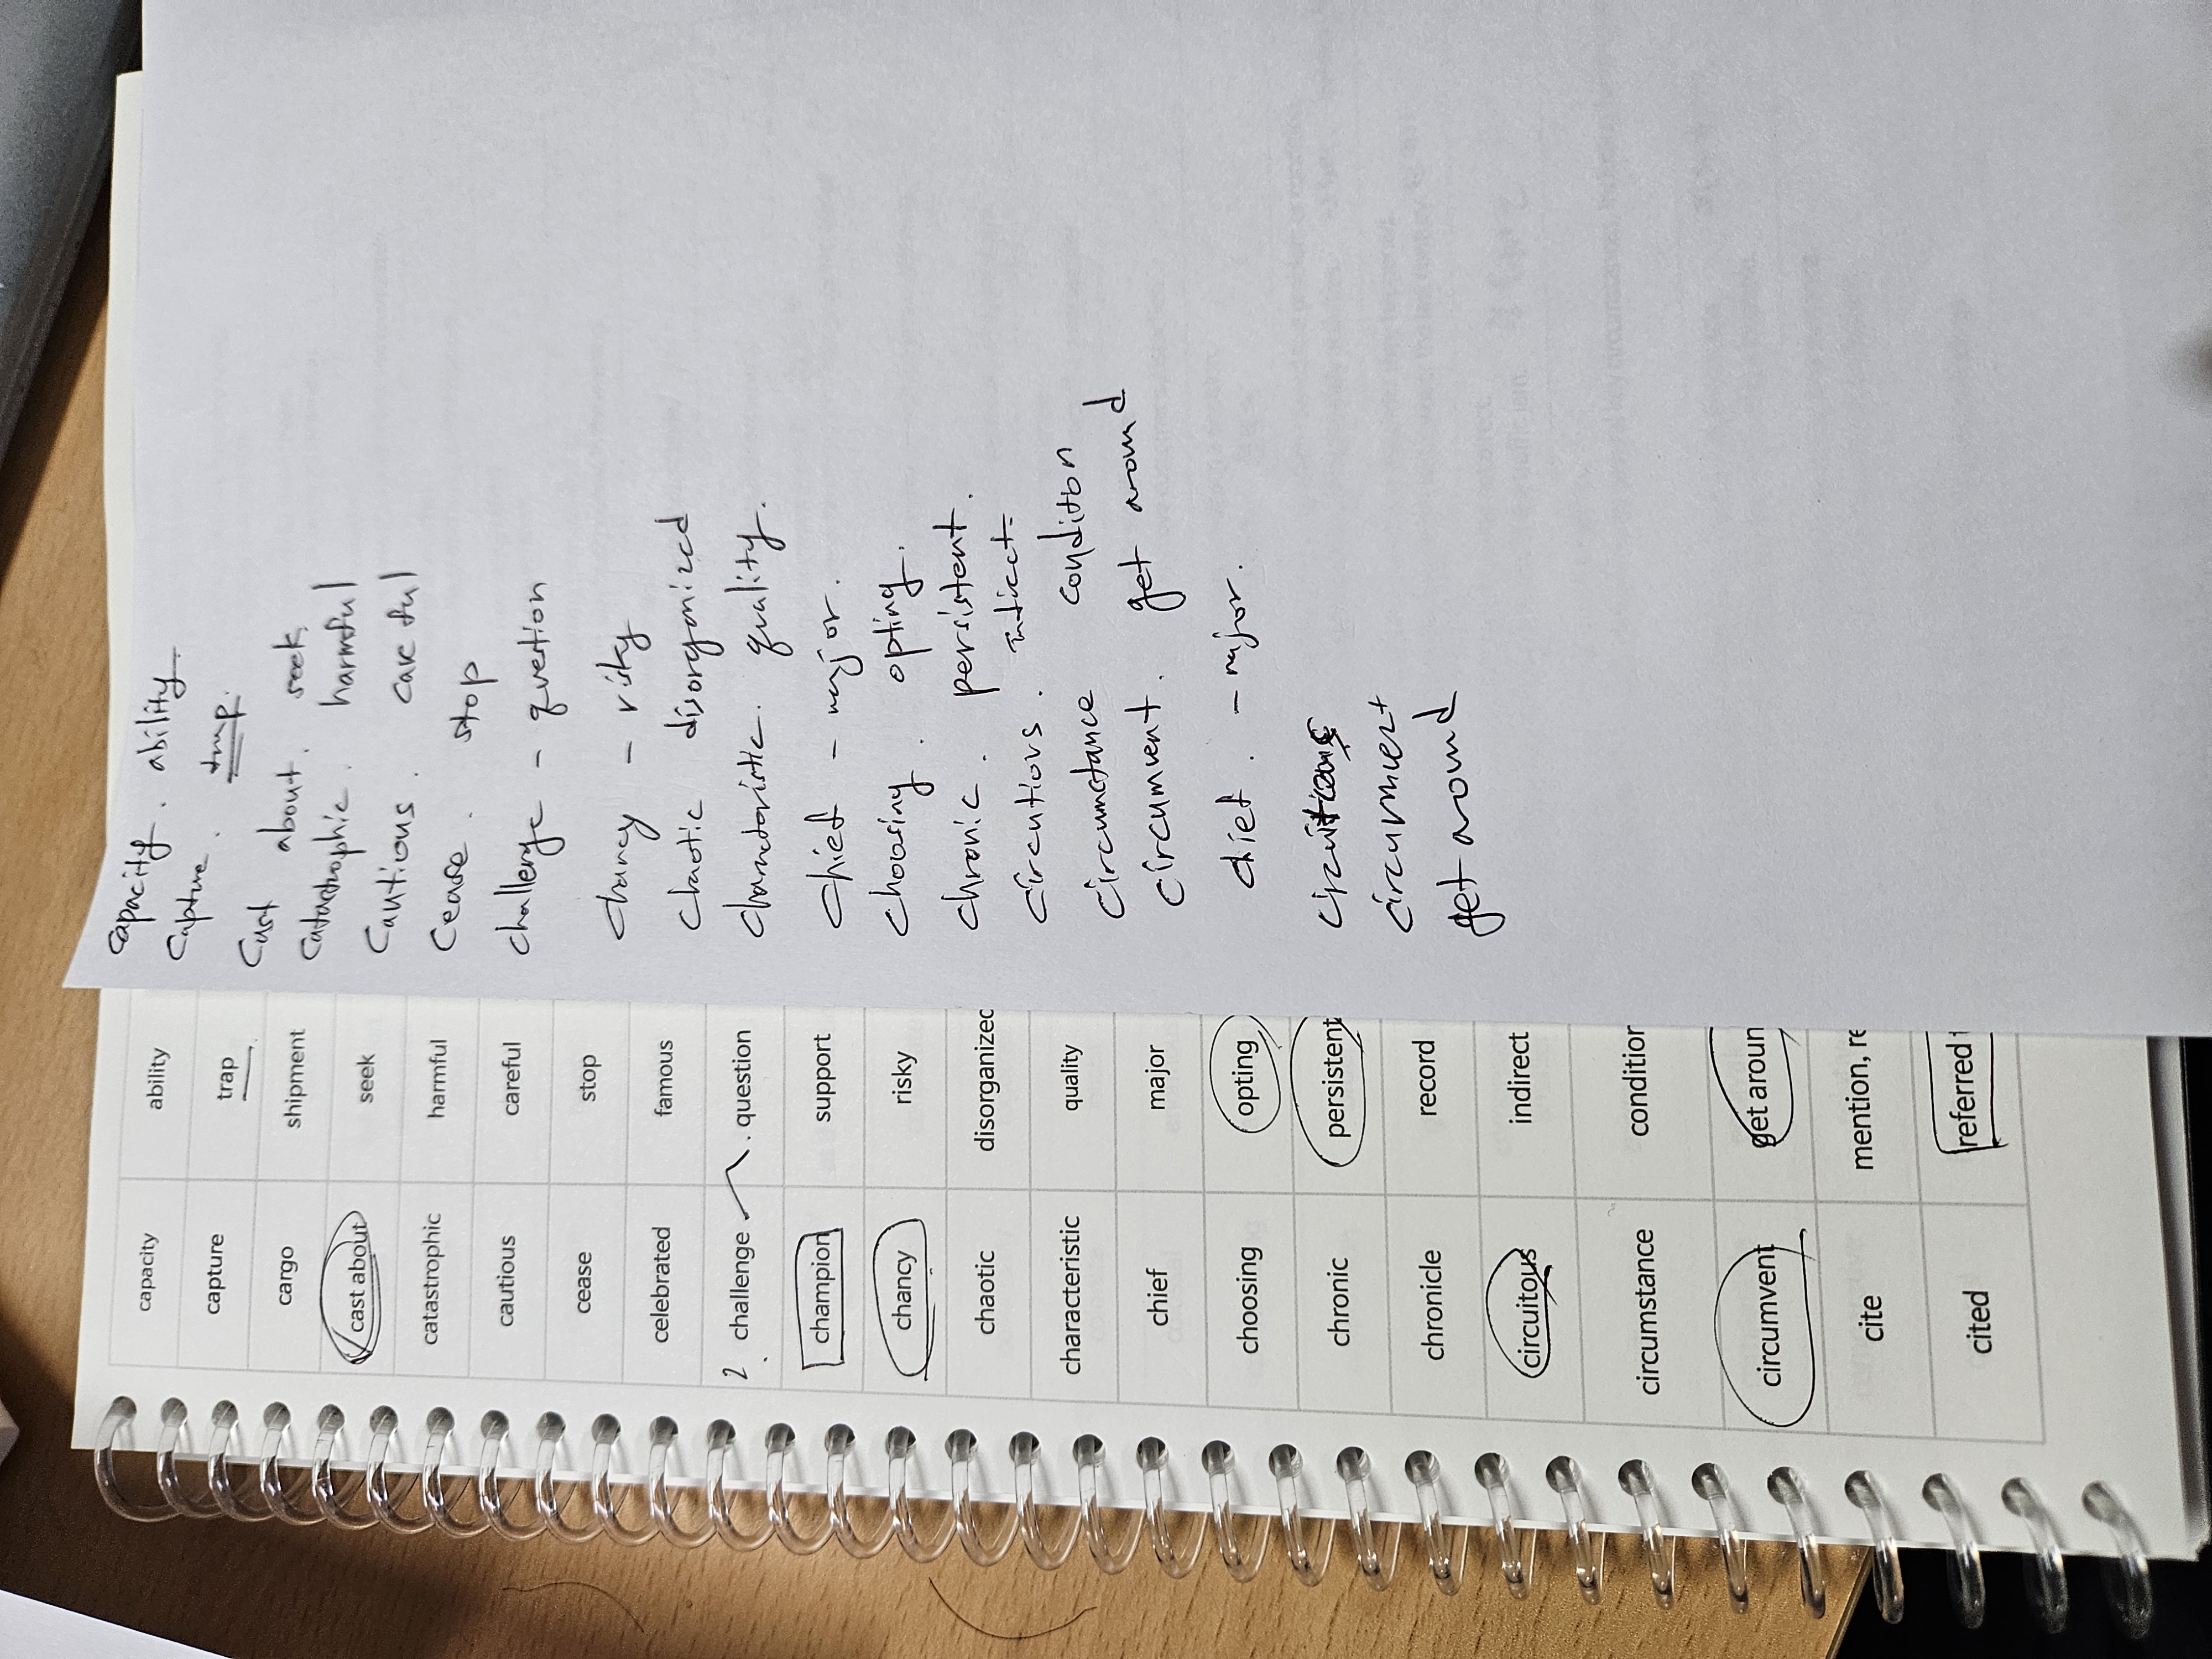 capacity ability
capture trap
cargo shipment
cast about seek
catastrophic harmful
cautious careful
cease stop
celebrated famous
2. challenge question
champion support
chancy risky
chaotic disorganized
characteristic quality
chief major
choosing opting
chronic persistent
chronicle record
circuitous indirect
circumstance condition
circumvent get aroun
cite mention, re
cited referred
capacity. ability
capture. trap.
Cast about. seek.
catastrophic. harmful
Cautious. careful
Cease. stop
challenge - question
chancy - risky
chaotic disorganized
characteristic. quality.
chief - major.
choosing. opting.
chronic. persistent.
circutios. indirect.
circumstance condition
circumvent. get around
chief. - major.
circumvent
get around